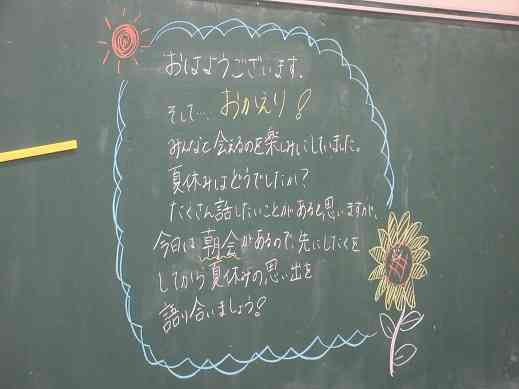 おはようございます。
そして… おかえり！
みんなと会えるのを楽しみにしていました。
夏休みはどうでしたか？
たくさん話したいことがあると思いますが、
今日は朝会があるので、先にしたくを
してから夏休みの思い出を
語り合いましょう！